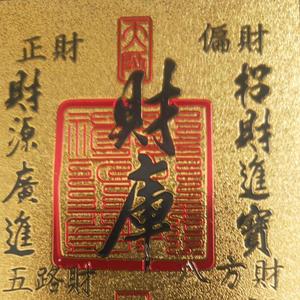 偏財
招財進寶
八方財
財庫
正財
財源廣進
五路財